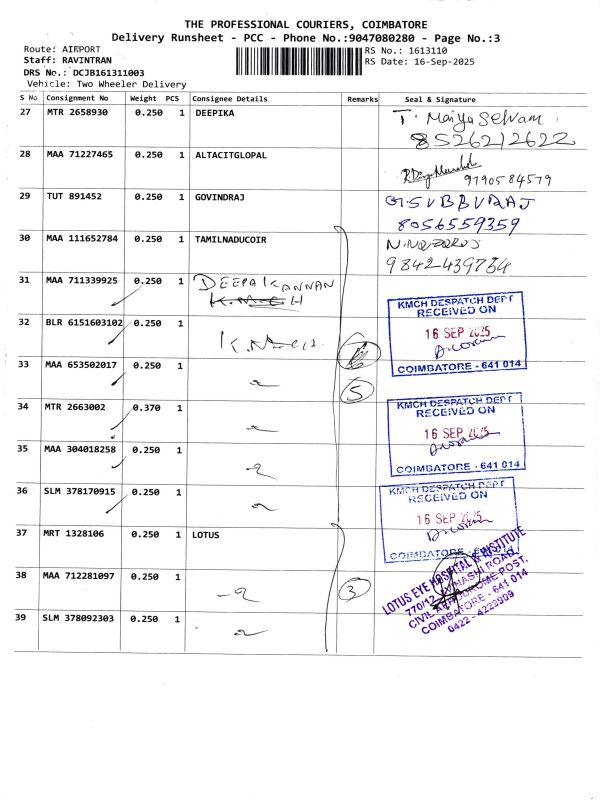 THE PROFESSIONAL COURIERS, COIMBATORE
Delivery Runsheet - PCC - Phone No.:9047080280 - Page No.:3
Route: AIRPORT
RS No.: 1613110
Staff: RAVINTRAN
RS Date: 16-Sep-2025
DRS No.: DCJB161311003
Vehicle: Two Wheeler Delivery
S No Consignment No Weight PCS Consignee Details Remarks Seal & Signature
27 MTR 2658930 0.250 1 DEEPIKA
8526212622
28 MAA 71227465 0.250 1 ALTACITGLOPAL
9790584579
29 TUT 891452 0.250 1 GOVINDRAJ
8056559359
30 MAA 111652784 0.250 1 TAMILNADUCOIR
9842439784
31 MAA 711339925 0.250 1 DEEPA KANNAN
KMCH DESPATCH DEPT
RECEIVED ON
16 SEP 2025
COIMBATORE - 641 014
32 BLR 6151603102 0.250 1
33 MAA 653502017 0.250 1
5
34 MTR 2663002 0.370 1
KMCH DESPATCH DEPT
RECEIVED ON
16 SEP 2025
COIMBATORE - 641 014
35 MAA 304018258 0.250 1
36 SLM 378170915 0.250 1
KMCH DESPATCH DEPT
RECEIVED ON
16 SEP 2025
COIMBATORE
37 MRT 1328106 0.250 1 LOTUS
38 MAA 712281097 0.250 1
3
LOTUS EYE HOSPITAL & INSTITUTE
770/12, AVINASHI ROAD,
CIVIL AERODROME POST,
COIMBATORE - 641 014
0422 - 4229909
39 SLM 378092303 0.250 1